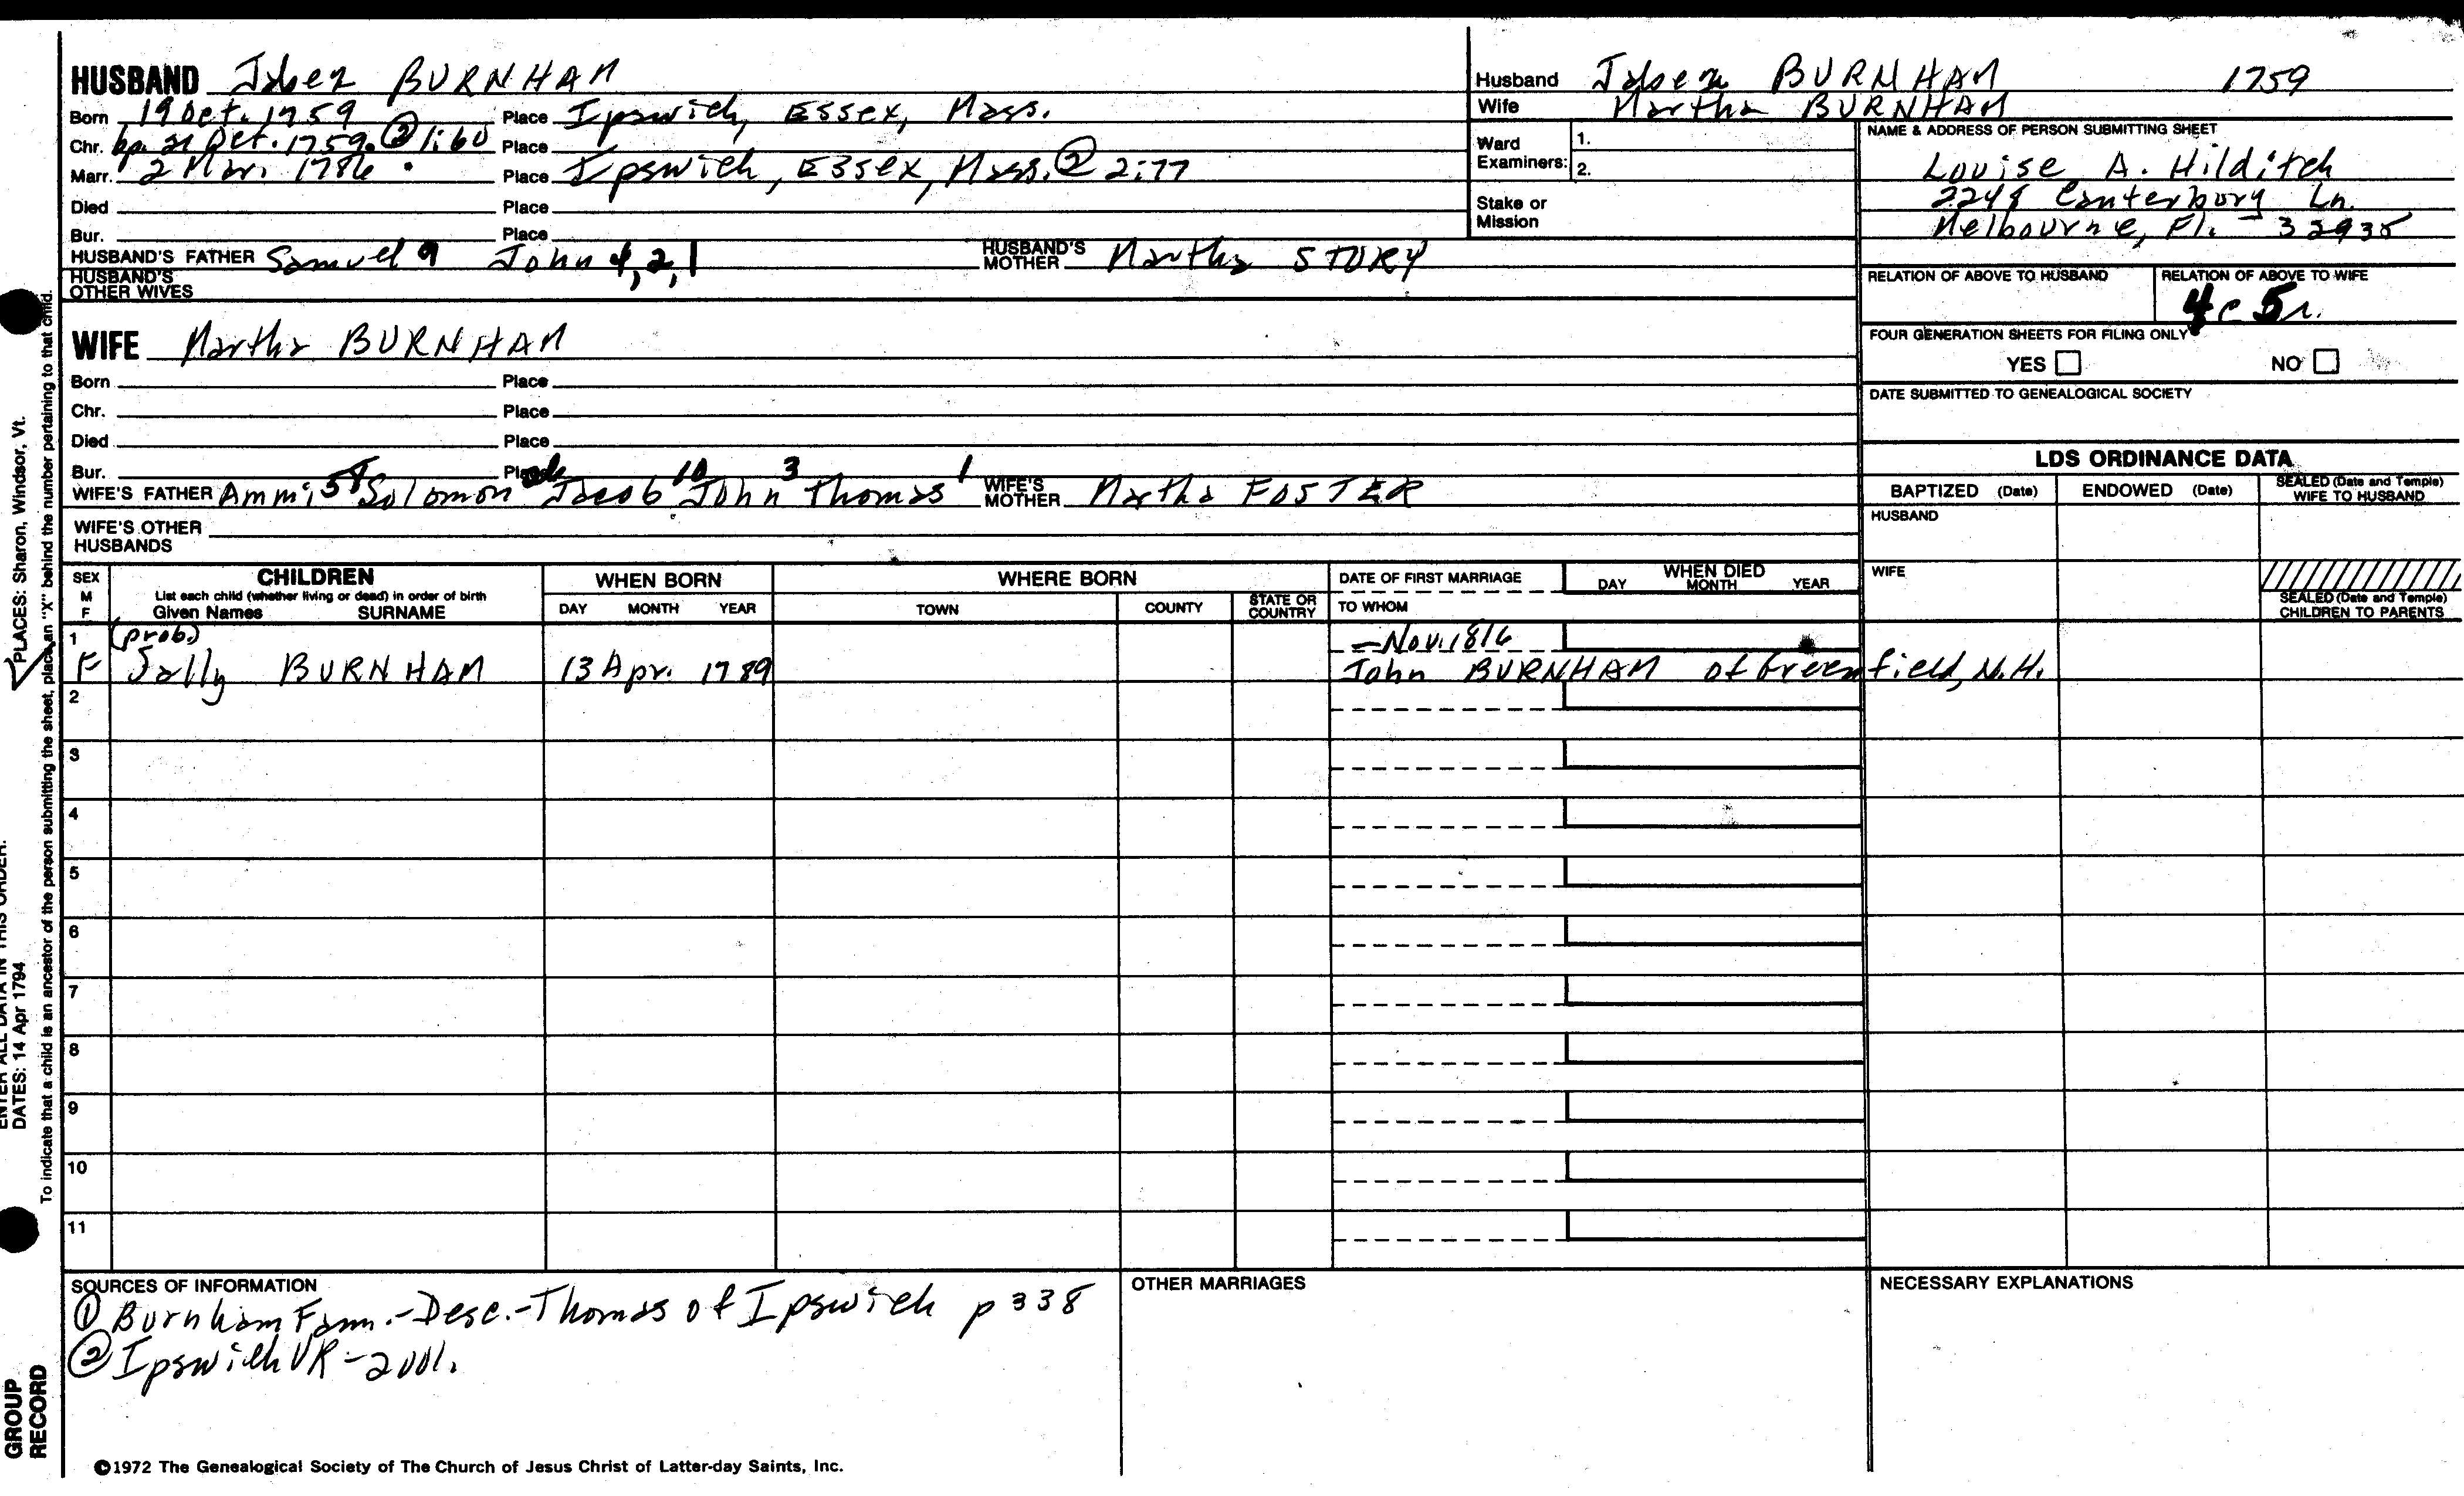 HUSBAND Jabez BURNHAM
Born 19 Oct. 1759 Place Ipswich, Essex, Mass.
Chr. bp. 21 Oct. 1759. ② 1:60 Place
Marr. 2 Mar. 1786 Place Ipswich, Essex, Mass. ② 2:77
Died Place
Bur. Place
HUSBAND'S FATHER Samuel 9 John 4, 2, 1 HUSBAND'S MOTHER Martha STORY
HUSBAND'S OTHER WIVES
Husband Jabez BURNHAM 1759
Wife Martha BURNHAM
Ward Examiners: 1.
2.
Stake or Mission
NAME & ADDRESS OF PERSON SUBMITTING SHEET
Louise A. Hilditch
2248 Canterbury Ln.
Melbourne, Fl. - 32935
RELATION OF ABOVE TO HUSBAND RELATION OF ABOVE TO WIFE
4c 5r.
FOUR GENERATION SHEETS FOR FILING ONLY
YES NO
DATE SUBMITTED TO GENEALOGICAL SOCIETY
WIFE Martha BURNHAM
Born Place
Chr. Place
Died Place
Bur. Place
WIFE'S FATHER Ammi 58 Solomon Jacob 10 John 3 Thomas 1 WIFE'S MOTHER Martha FOSTER
WIFE'S OTHER HUSBANDS
LDS ORDINANCE DATA
BAPTIZED (Date) ENDOWED (Date) SEALED (Date and Temple) WIFE TO HUSBAND
HUSBAND
WIFE
SEALED (Date and Temple) CHILDREN TO PARENTS
SEX M F CHILDREN List each child (whether living or dead) in order of birth Given Names SURNAME
WHEN BORN DAY MONTH YEAR
WHERE BORN TOWN COUNTY STATE OR COUNTRY
DATE OF FIRST MARRIAGE TO WHOM
WHEN DIED DAY MONTH YEAR
1 (prob.) - Nov. 1816
F Sally BURNHAM 13 Apr. 1789 John BURNHAM of Greenfield, N.H.
2
3
4
5
6
7
8
9
10
11
SOURCES OF INFORMATION
① Burnham Fam.-Desc.-Thomas of Ipswich p 338
② Ipswich VR - 2 vol.
OTHER MARRIAGES
NECESSARY EXPLANATIONS
©1972 The Genealogical Society of The Church of Jesus Christ of Latter-day Saints, Inc.
GROUP RECORD
ENTER ALL DATA IN THIS ORDER:
DATES: 14 Apr 1794
PLACES: Sharon, Windsor, Vt.
To indicate that a child is an ancestor of the person submitting the sheet, place an "X" behind the number pertaining to that child.